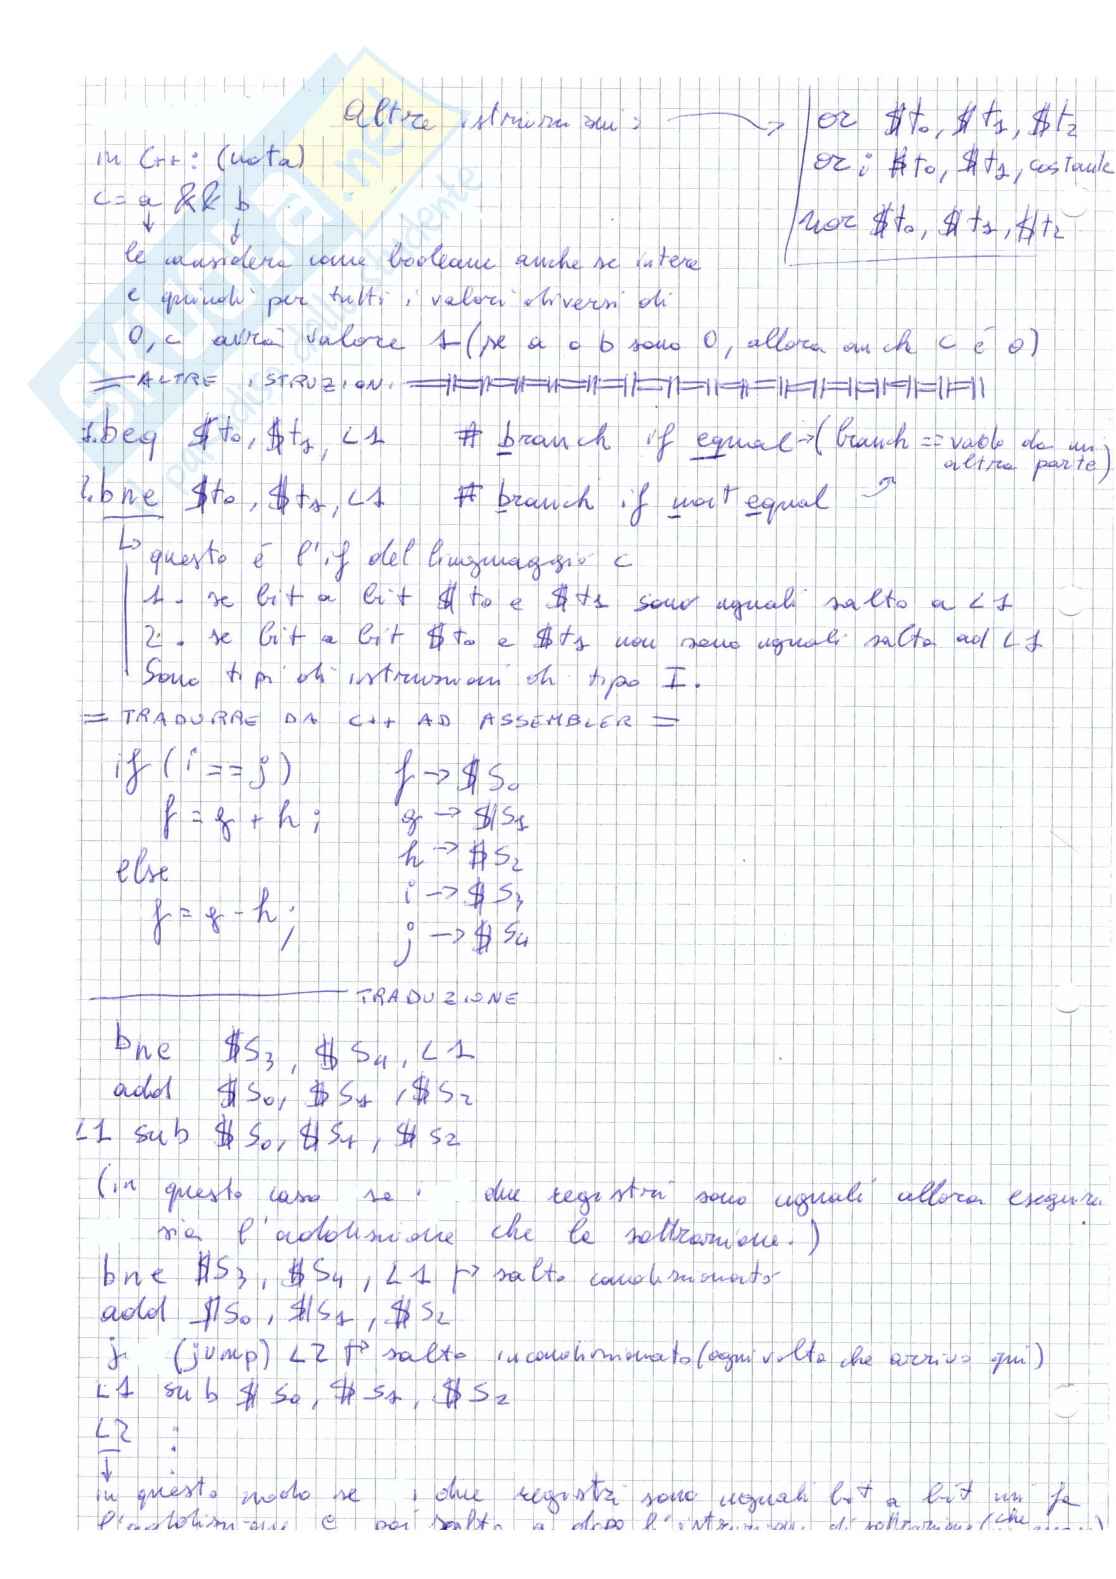 Altre istruzioni: → or $t0, $t1, $t2
ori $t0, $t1, costante
nor $t0, $t1, $t2
in C++: (nota)
c = a && b
le considera come booleane anche se intere
e quindi per tutti i valori diversi di
0, c avrà valore 1 (se a o b sono 0, allora anche c è 0)
= ALTRE ISTRUZIONI =
1. beq $t0, $t1, L1 # branch if equal → (branch == vado da un
altra parte)
2. bne $t0, $t1, L1 # branch if not equal
↳ questo è l'if del linguaggio C
1. se bit a bit $t0 e $t1 sono uguali salto a L1
2. se bit a bit $t0 e $t1 non sono uguali salta ad L1
Sono tipi di istruzioni di tipo I.
= TRADURRE DA C++ AD ASSEMBLER =
if (i == j) f → $S0
f = g + h; g → $S1
h → $S2
else
i → $S3
f = g - h;
j → $S4
TRADUZIONE
bne $S3, $S4, L1
add $S0, $S1, $S2
L1 sub $S0, $S1, $S2
(in questo caso se i due registri sono uguali allora eseguirà
sia l'addizione che la sottrazione.)
bne $S3, $S4, L1 → salto condizionato
add $S0, $S1, $S2
j (jump) L2 → salto incondizionato (ogni volta che arrivo qui)
L1 sub $S0, $S1, $S2
L2 :
in questo modo se i due registri sono uguali bit a bit mi fa
l'addizione e poi salta a dopo l'istruzione di sottrazione (che